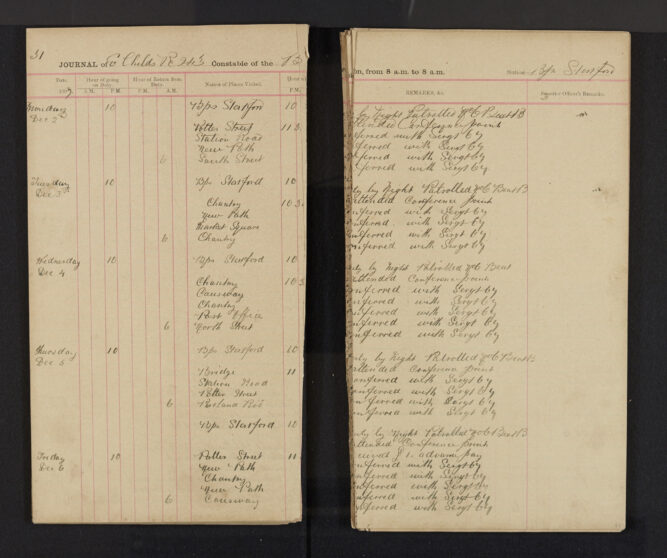 31
JOURNAL of Pc Childs R. 243 Constable of the
Date. Hour of going on Duty. Hour of Return from Duty. Names of Places Visited. Hour
A.M. P.M. P.M. A.M. P.M.
Monday 10 B/ps Stortford 10
Dec 2
Potter Street 11.3
Station Road
New Path
6 South Street
Tuesday 10 B/ps Storford 10
Dec 3
Chantry 10.3
New Path
Market Square
6 Chantry
Wednesday 10 B/ps Storford 10
Dec 4
Chantry 10.3
Causeway
Chantry
Post Office
6 North Street
Thursday 10 B/ps Storford 10
Dec 5
Bridge 11
Station Road
Potter Street
6 Portland Rd
B/ps Storford 10
Friday 10 Potter Street 11
Dec 6 New Path
Chantry
New Path
6 Causeway
on, from 8 a.m. to 8 a.m. Station B/ps Stortford
REMARKS, &c. Superior Officer's Remarks.
by Night Patrolled No C Beat B
ttended Conference point
nferred with Sergt 6y
nferred with Sergt 6y
nferred with Sergt 6y
nferred with Sergt 6y
uty by Night Patrolled No C Beat B
attended Conference point
onferred with Sergt 6y
onferred with Sergt 6y
onferred with Sergt 6y
onferred with Sergt 6y
uty by Night Patrolled No C Beat
attended Conference point
onferred with Sergt 6y
onferred with Sergt 6y
onferred with Sergt 6y
onferred with Sergt 6y
onferred with Sergt 6y
uty by Night Patrolled No C Beat B
attended Conference point
onferred with Sergt 6y
onferred with Sergt 6y
onferred with Sergt 6y
onferred with Sergt 6y
uty by Night Patrolled No C Beat B
ttended Conference point
advance pay
onferred with Sergt 6y
onferred with Sergt 6y
onferred with Sergt 6y
onferred with Sergt 6y
onferred with Sergt 6y